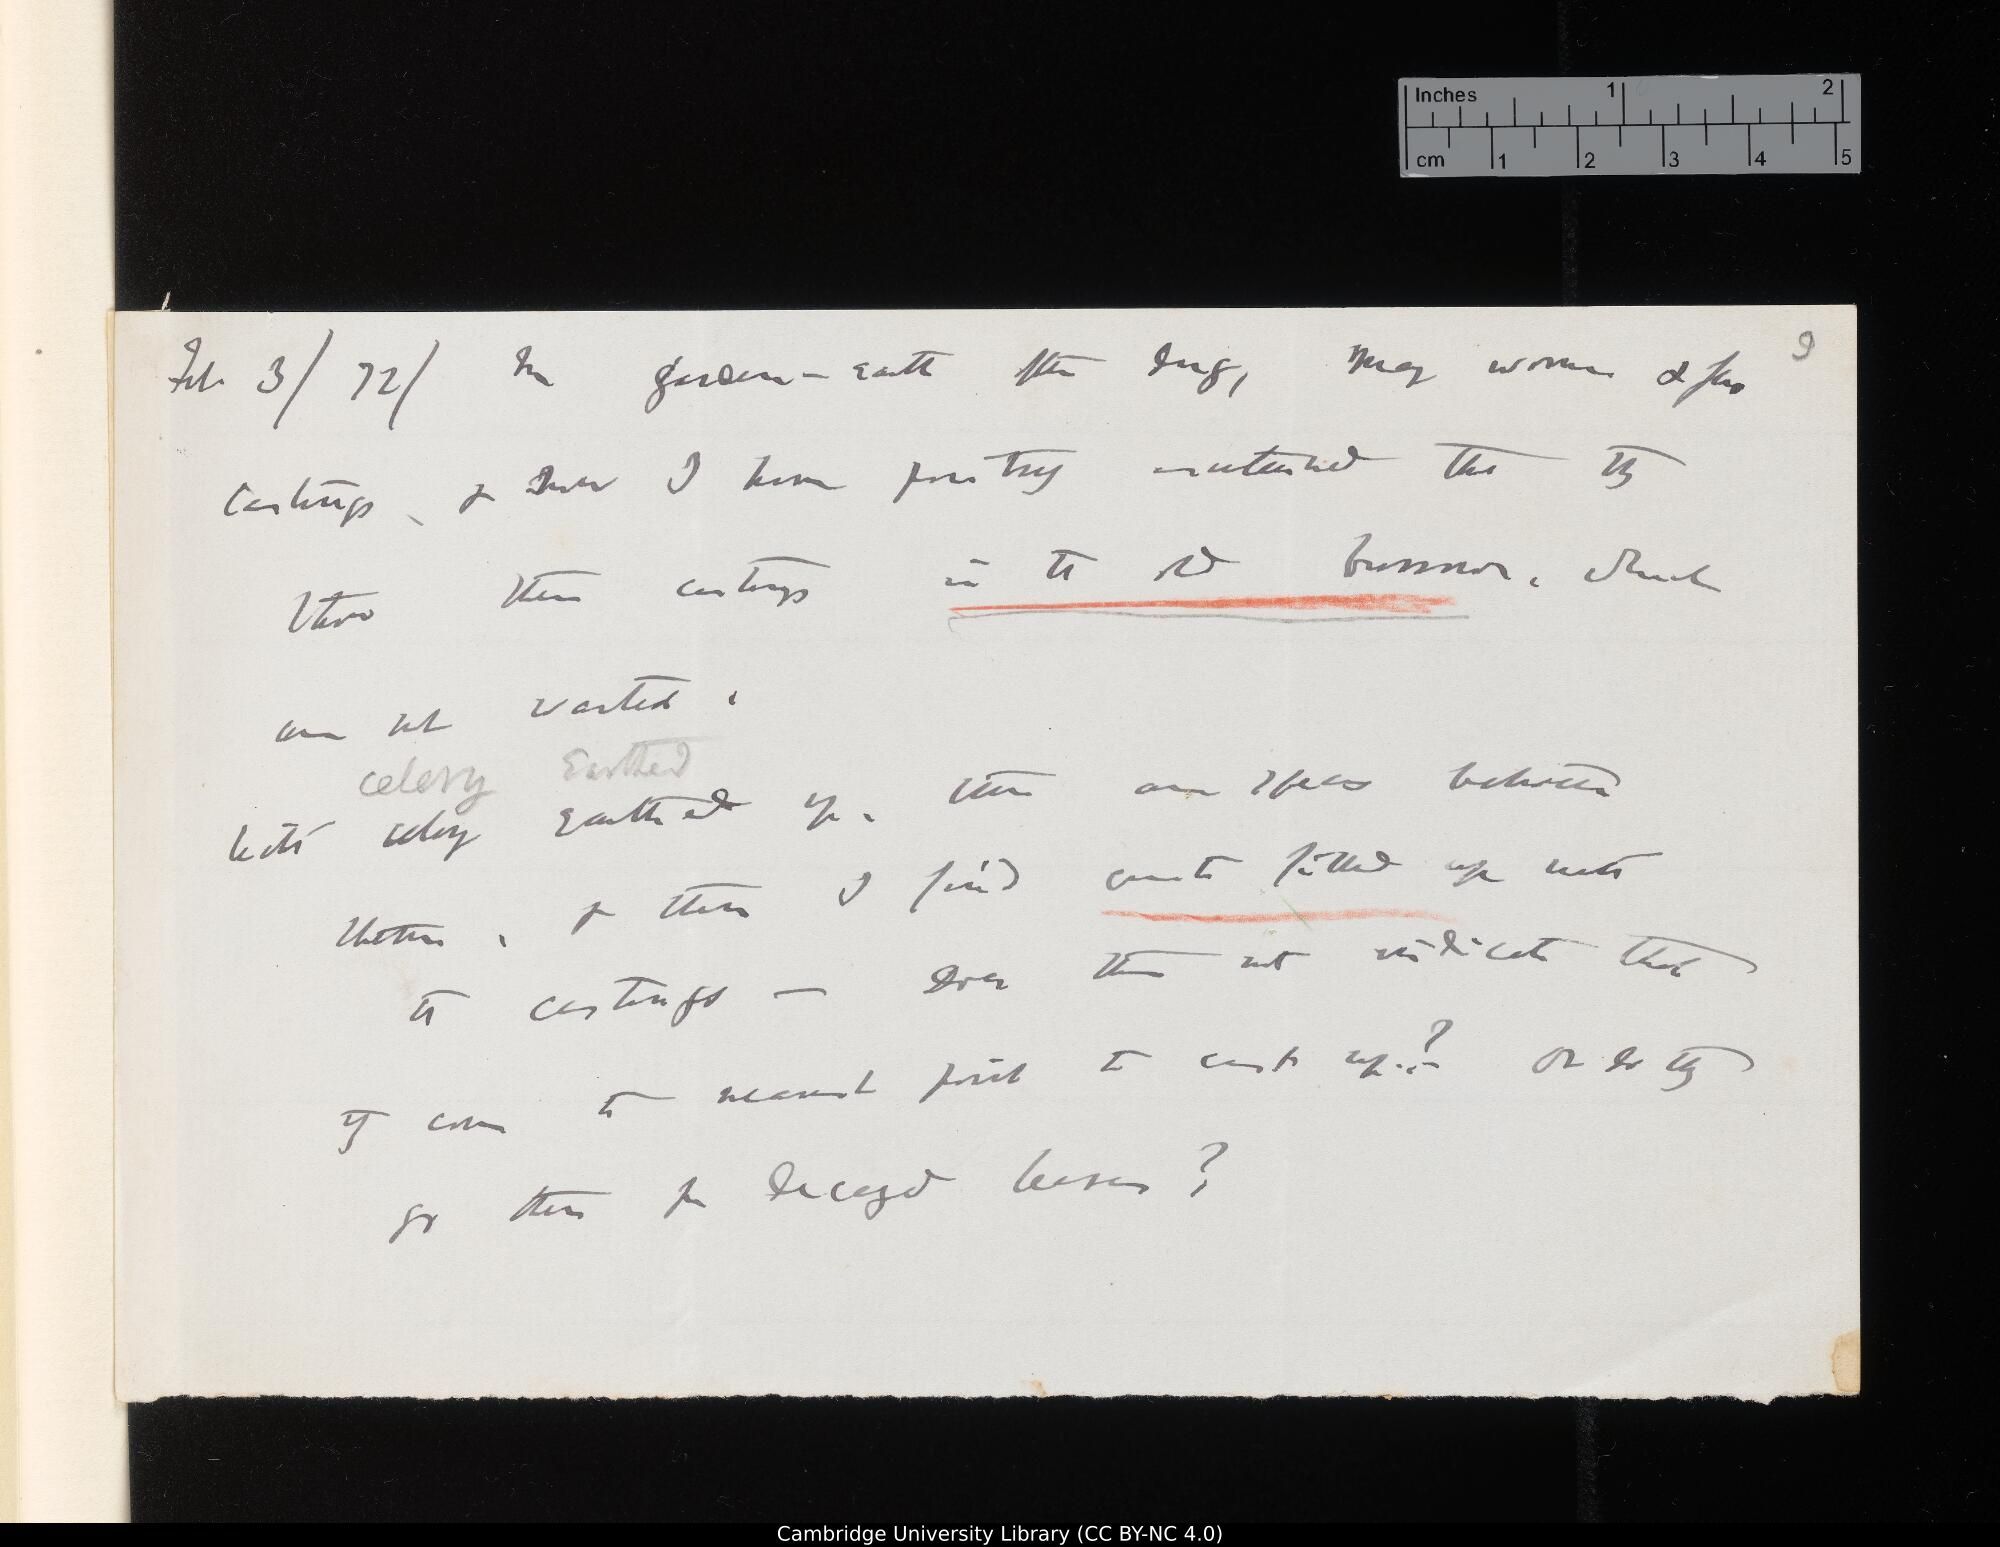 Inches 1 2
cm 1 2 3 4 5
9
Feb 3/ 72/ In garden-earth often dug, many worms & few
castings, & now I have partly ascertained that they
throw their castings in the old burrows, which
are not wanted.
celery Earthed
With celery earthed up, there are spaces between
them, & these I find quite filled up with
the castings — Does this not indicate that
they come to nearest point to cast up.? Or do they
go there for decayed leaves?
Cambridge University Library (CC BY-NC 4.0)